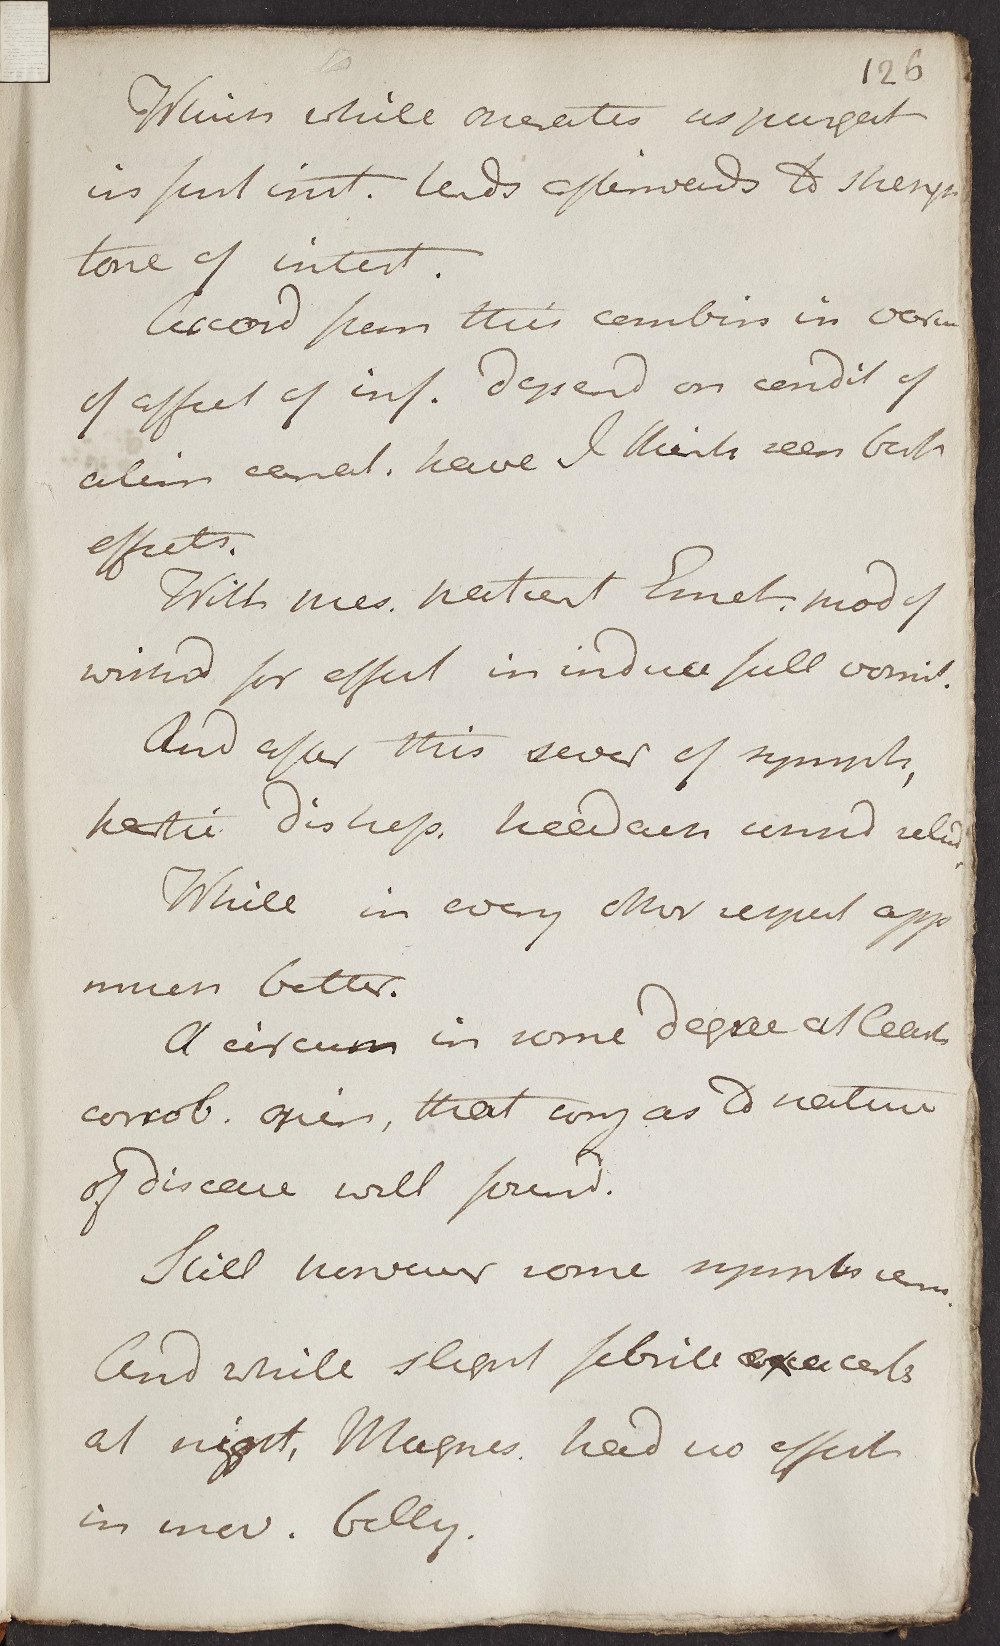 126
Which while operates as purgat
in first inst. tends afterwards to strengt
tone of intest.
Accord from this combin in
of effect of inf. depend on condit of
alim canal. have I think seen both
effects.
With pres. patient Emet. mod of
wished for effect in induce full vomit.
And after this sever of symph,
partic dishep. headach cons'd
While in every other respect app
much better.
A circum in some degree at least
corrob. opin, that conj as to nature
of disease well found.
Still however some sympts rem.
And while slight febrile exacerb
at night, Magnes. had no effect
in mov. belly.